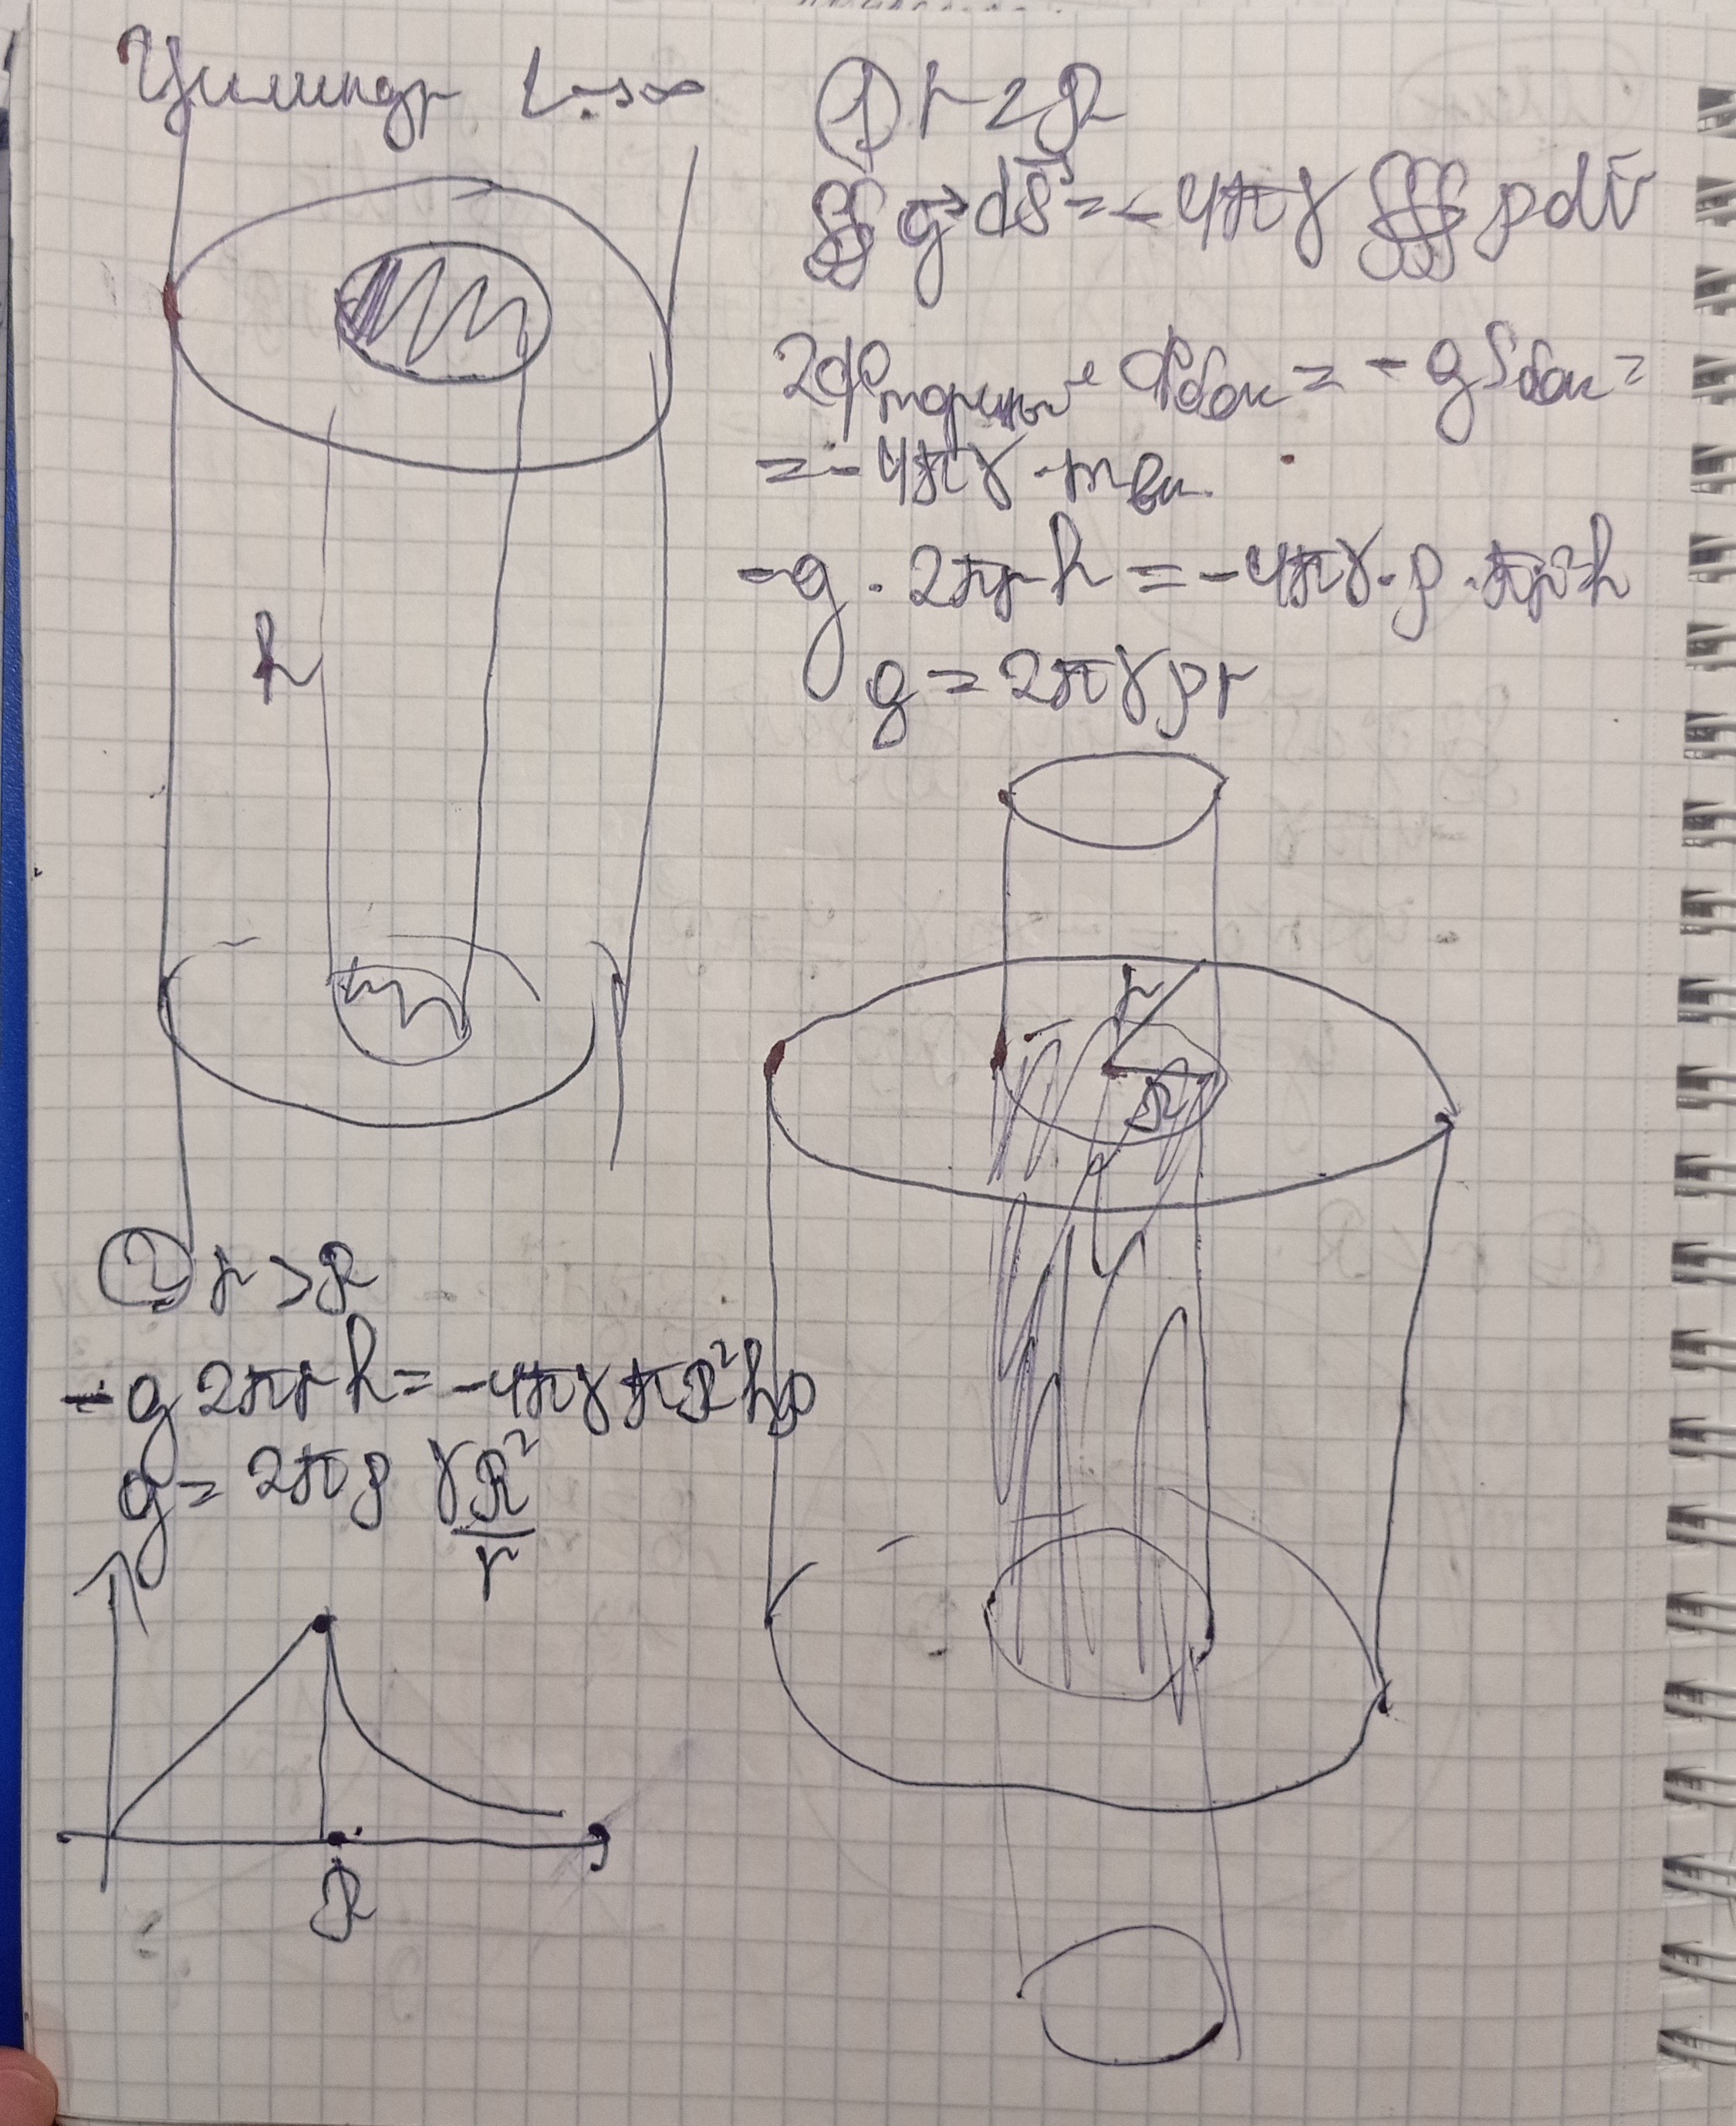 Цилиндр L→∞
① r < R
∯ g⃗ dS⃗ = -4πγ ∰ ρ dV
2Фторцы + Фбок = -g Sбок =
= -4πγ · mвн.
-g · 2πrh = -4πγ · ρ · πr²h
g = 2πγρr
h
r
R
② r > R
-g 2πrh = -4πγπR²hρ
g = 2πργ R²/r
R